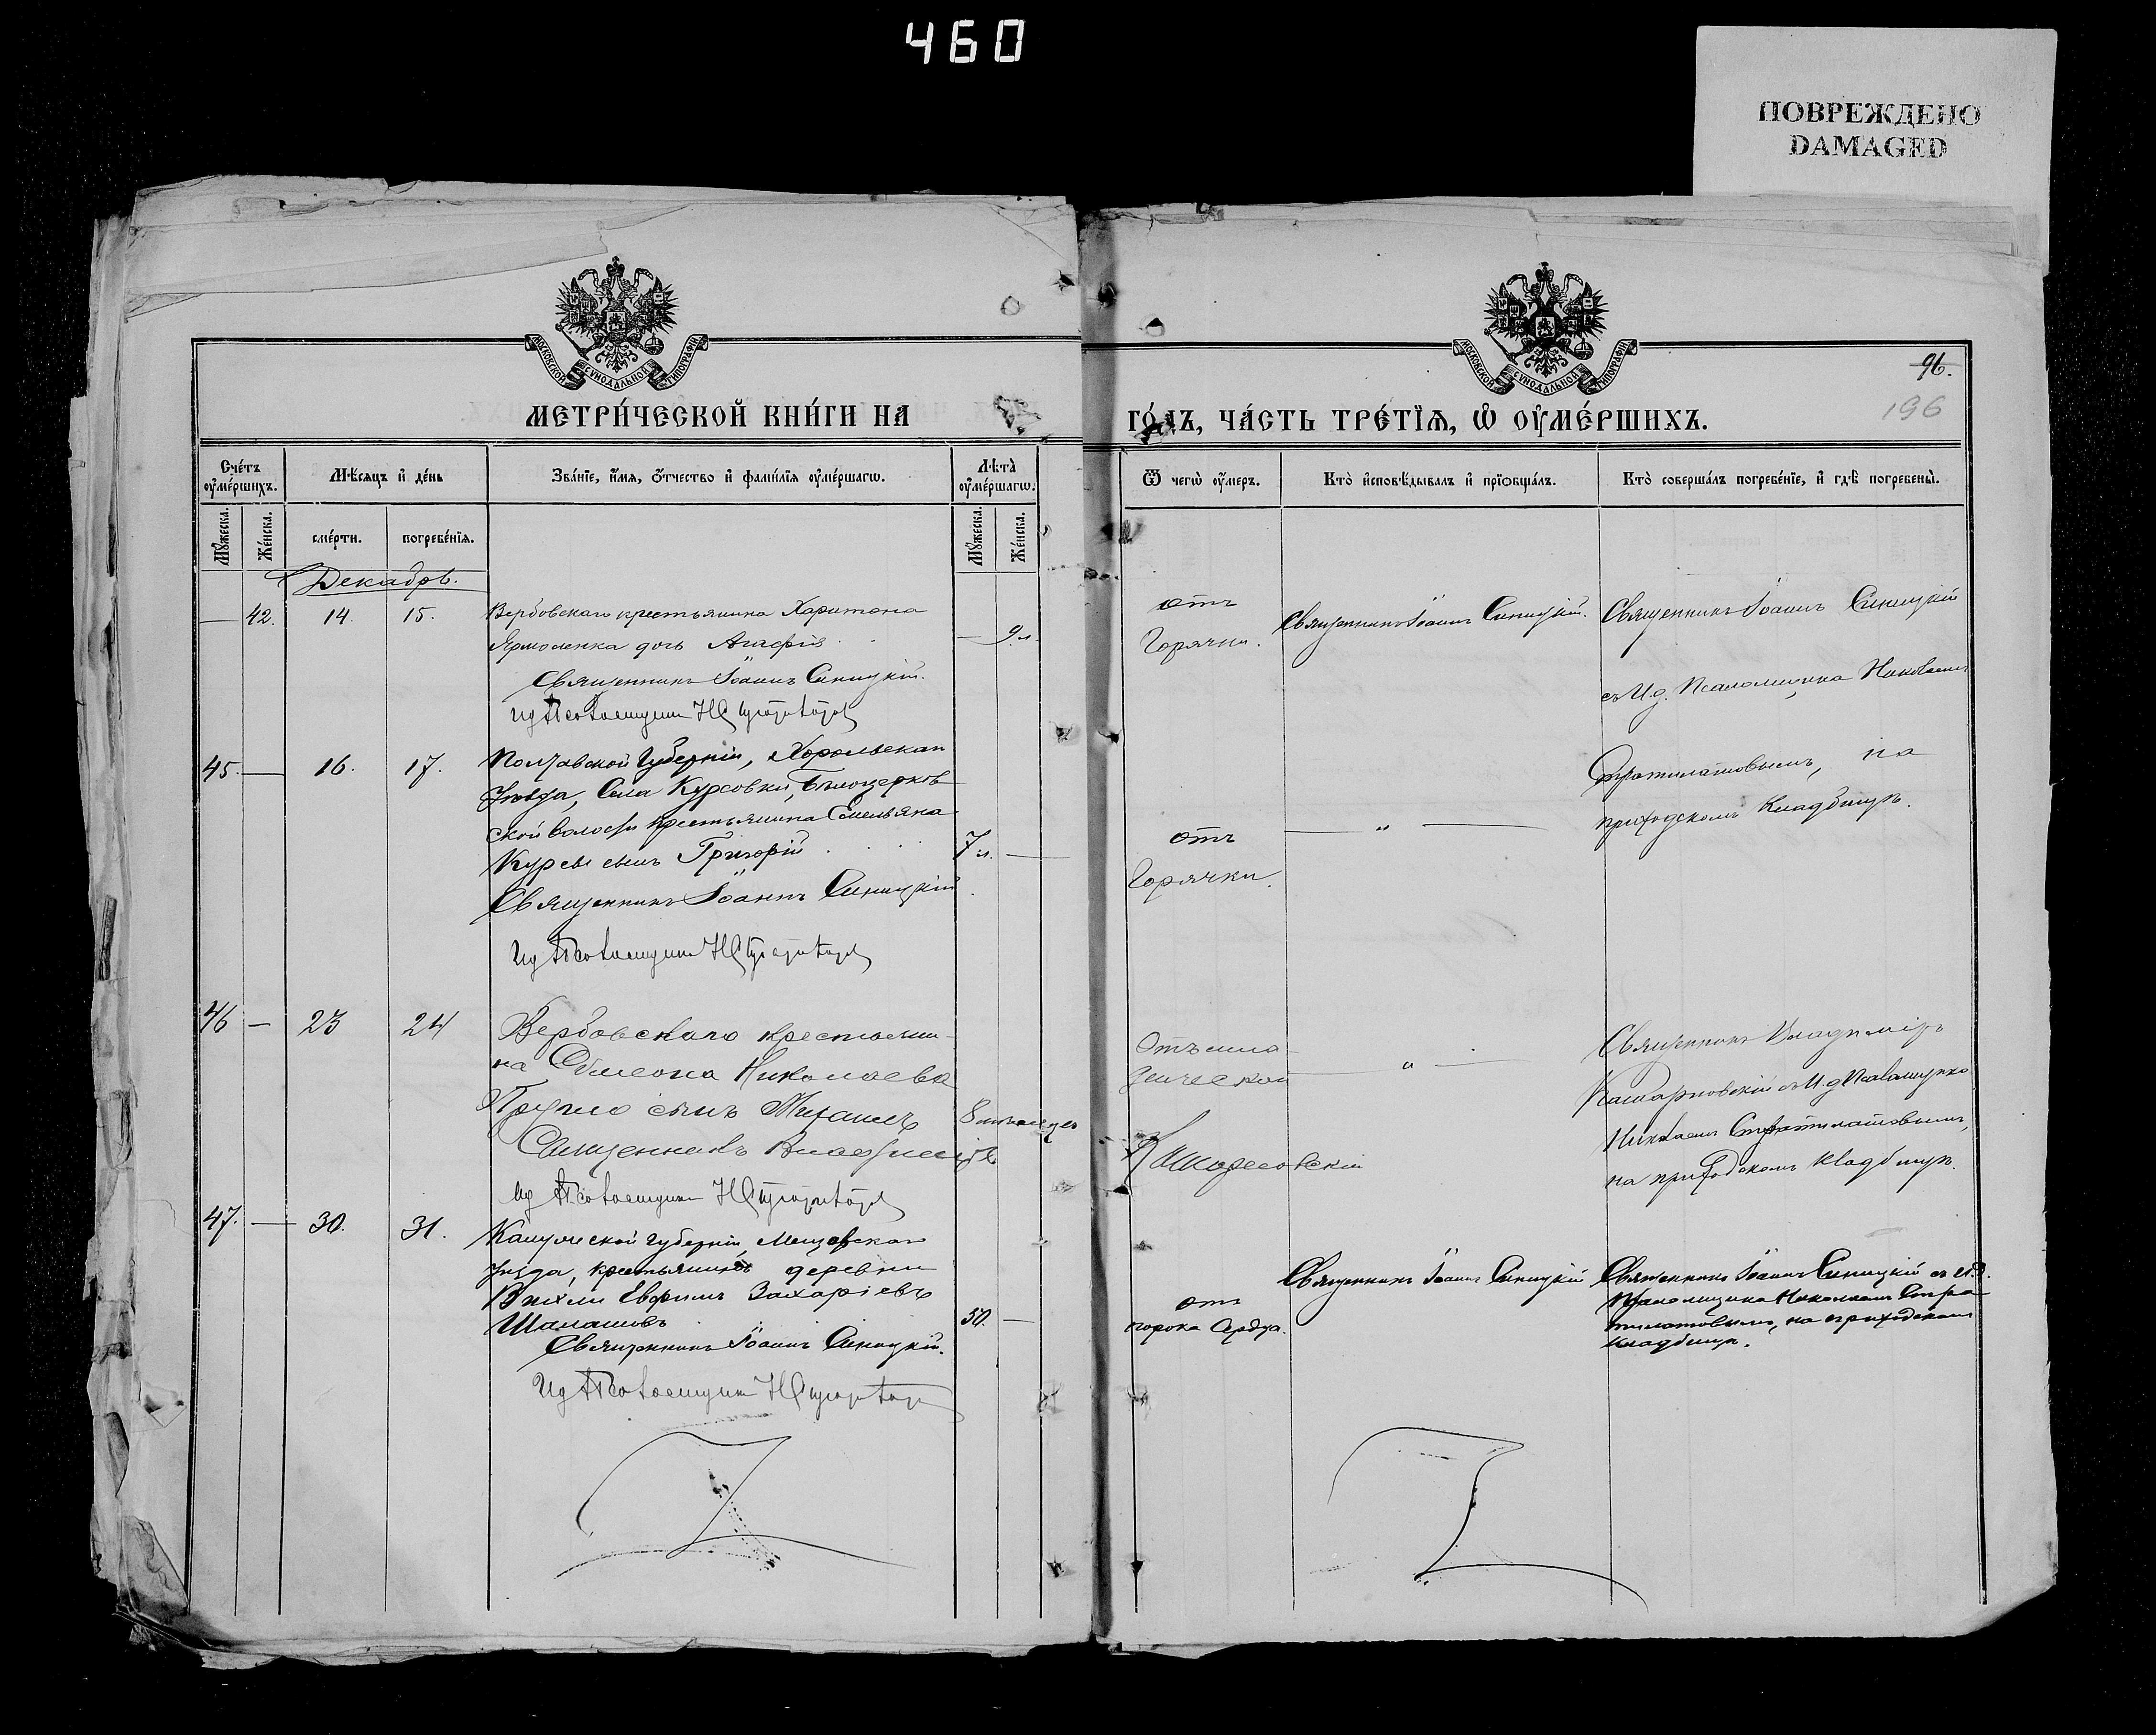 460
ПОВРЕЖДЕНО
DAMAGED
МОСКОВСКОЙ СѴНОДАЛЬНОЙ ТИПОГРАФІИ
МОСКОВСКОЙ СѴНОДАЛЬНОЙ ТИПОГРАФІИ
96.
196
МЕТРИ́ЧЕСКОЙ КНИ́ГИ НА
ГО́ДЪ, ЧА́СТЬ ТРЕ́ТІѦ, Ѡ ОУ҆МЕ́РШИХЪ.
Сче́тъ оу҆ме́ршихъ.
Мѣ́сяцъ и҆ де́нь
Зва́нїе, и҆́мя, ѻ҆́тчество и҆ фами́лїя оу҆ме́ршагѡ.
Лѣ́та̀ оу҆ме́ршагѡ.
Ѿ чегѡ̀ оу҆́меръ.
Кто̀ и҆сповѣ́дывалъ и҆ прїѡбща́лъ.
Кто̀ соверша́лъ погребе́нїе, и҆ гдѣ̀ погребены̀.
Мꙋ́жеска.
Же́нска.
сме́рти.
погребе́нїя.
Мꙋ́жеска.
Же́нска.
Декабрь.
— 42. 14. 15. Вербовскаго крестьянина Харитона
Ярмоленка дочь Агафія — 9 л.
Священникъ Іоаннъ Синицкій.
Ид Псаломщика Н
отъ
Горячки.
Священникъ Іоаннъ Синицкій.
Священникъ Іоаннъ Синицкій
съ И.д. Псаломщика Николаемъ
Стратилатовымъ, на
приходскомъ Кладбищѣ.
45. — 16. 17. Полтавской Губерніи, Хорольскаго
Уѣзда, Села Курсовки, Бѣлоцерков
ской волости крестьянина Емельяна
Курсы сынъ Григорій 7 л. —
Священникъ Іоаннъ Синицкій
Ид Псаломщика Н
отъ
Горячки.
— „ —
46 — 23 24 Вербовскаго крестьяни-
на Симеона Николаева
сынъ Михаилъ 8 мѣсяцевъ
Священникъ Владиміръ
Кашаровскій
Ид Псаломщика Н
Отъ мла-
денческой
— „ —
Священникъ Владиміръ
Кашаровскій съ И.д Псаломщика
Николаемъ Стратилатовымъ,
на приходскомъ Кладбищѣ.
47. — 30. 31. Калужской губерніи, Мещовскаго
Уѣзда, крестьянинъ деревни
Евфимъ Захаріевъ
Шалашовъ 50. —
Священникъ Іоаннъ Синицкій.
Ид Псаломщика Н
отъ
порока Сердца.
Священникъ Іоаннъ Синицкій
Священникъ Іоаннъ Синицкій съ И.д.
Псаломщика Николаемъ Стра-
тилатовымъ, на приходскомъ
Кладбищѣ.